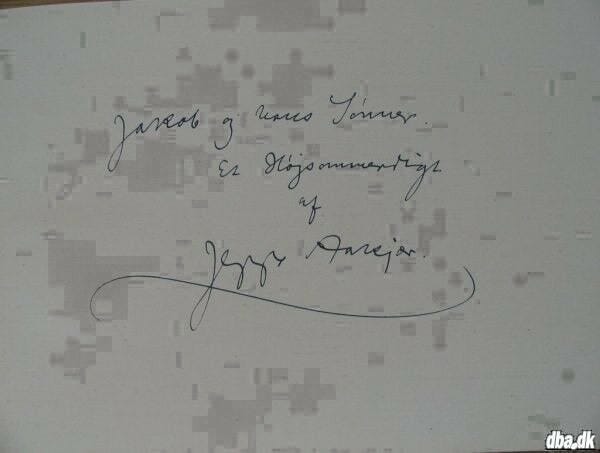 Jakob og hans Sønner.
Et Højsommerdigt
af
Jeppe Aakjær.
dba.dk